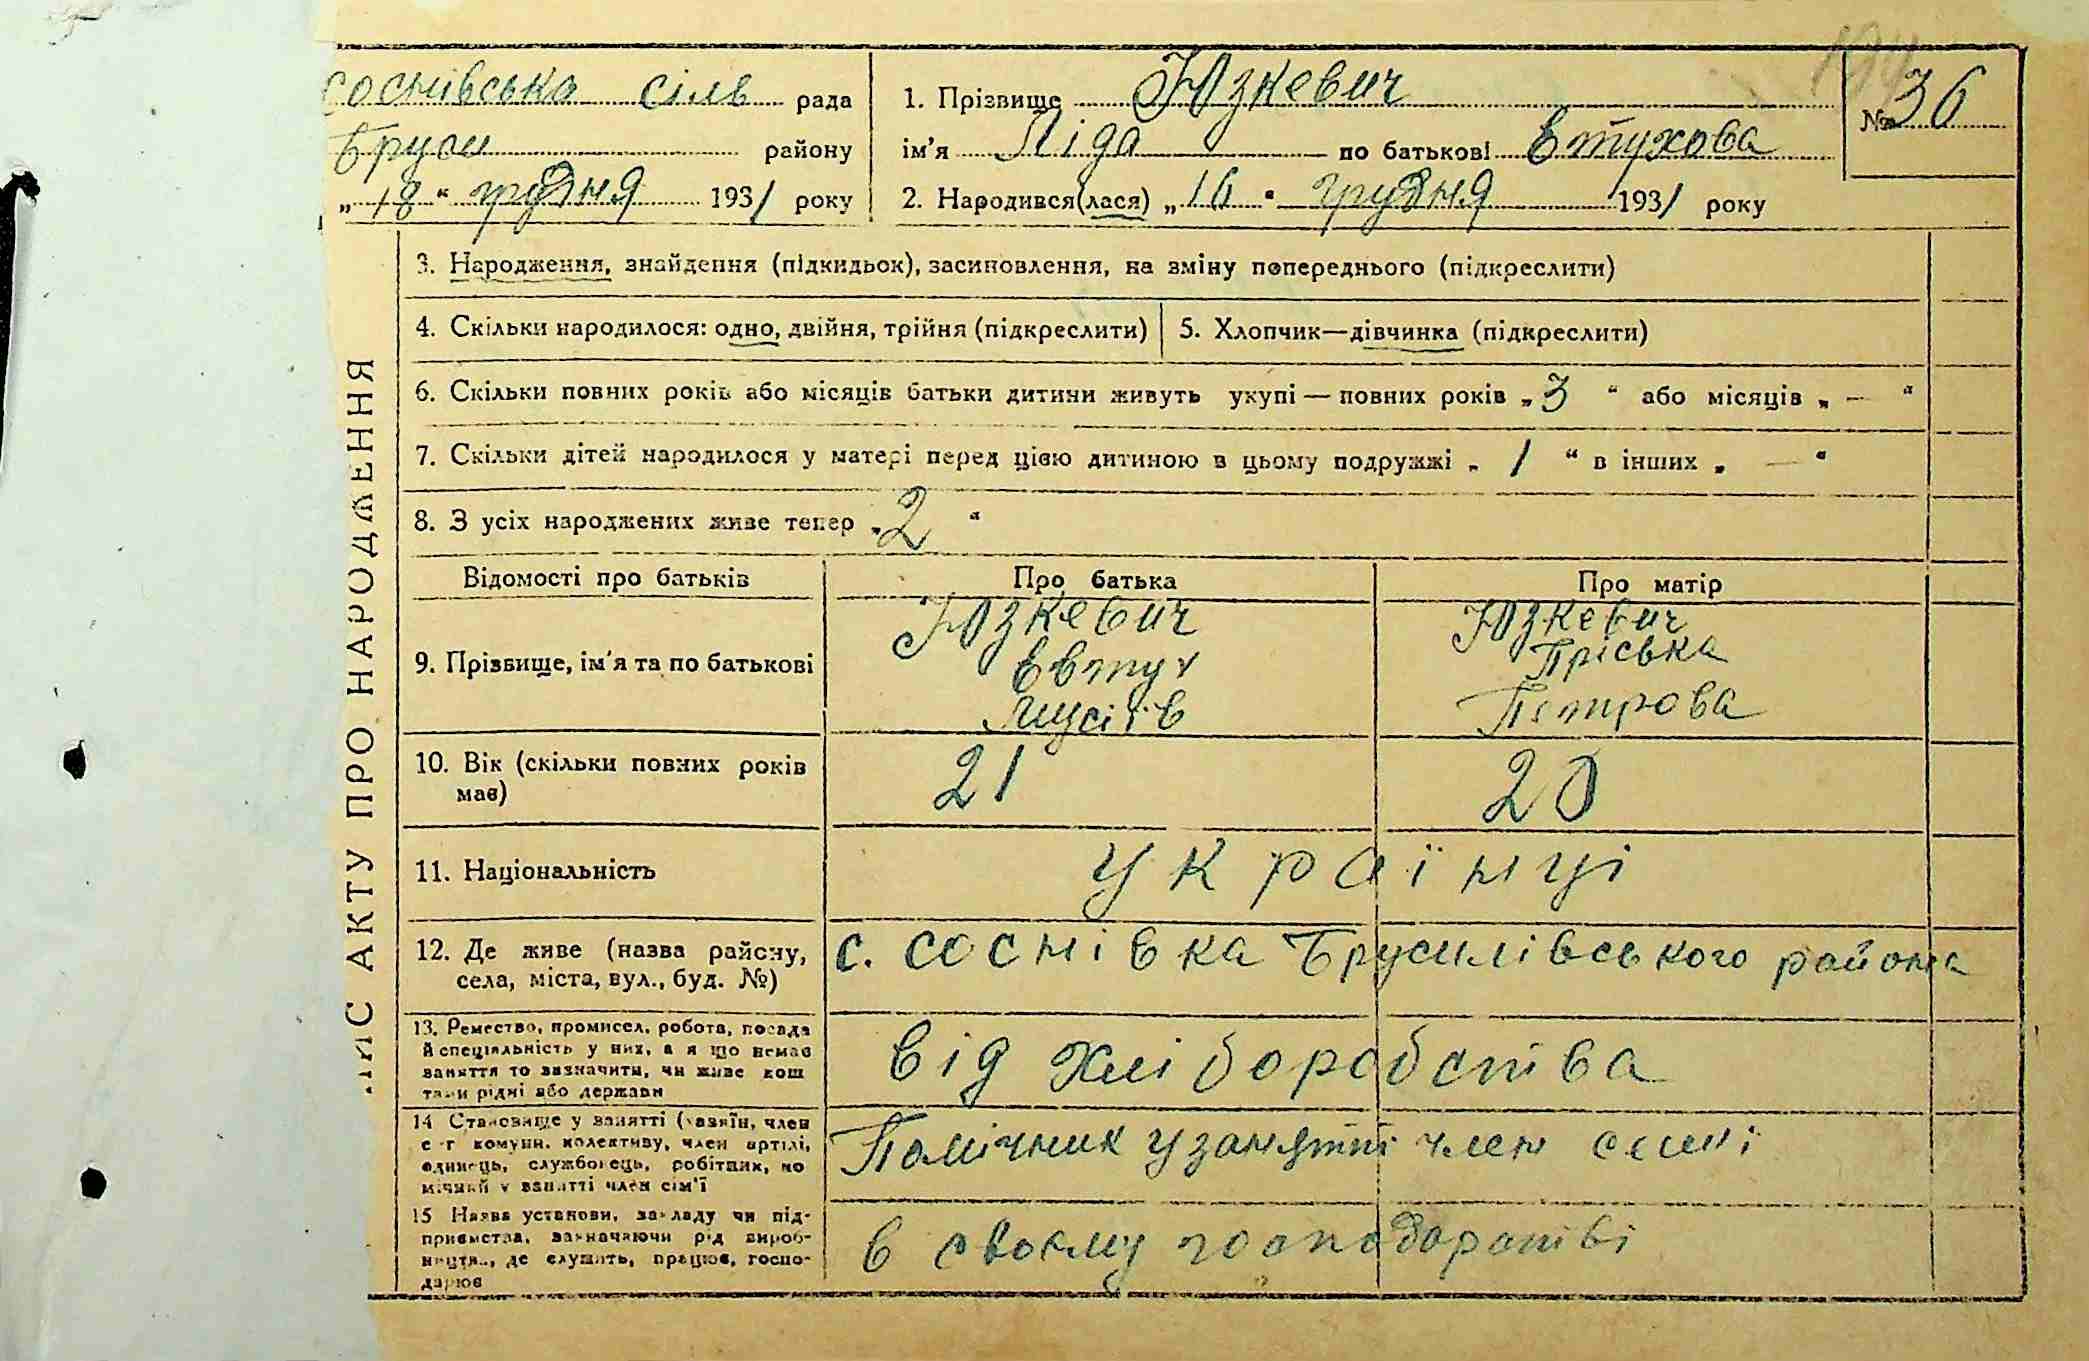 соснівська сіль рада
Бруси району
„18“ грудня 1931 року
1. Прізвище Юзкевич
ім'я Ліда по батькові Втухова
2. Народився(лася) „16“ грудня 1931 року
№ 36
ПИС АКТУ ПРО НАРОДЖЕННЯ
3. Народження, знайдення (підкидьок), засиновлення, на зміну попереднього (підкреслити)
4. Скільки народилося: одно, двійня, трійня (підкреслити)
5. Хлопчик—дівчинка (підкреслити)
6. Скільки повних років або місяців батьки дитини живуть укупі — повних років „3“ або місяців „—“
7. Скільки дітей народилося у матері перед цією дитиною в цьому подружжі „1“ в інших „—“
8. З усіх народжених живе тепер „2“
Відомості про батьків
Про батька
Про матір
9. Прізвище, ім'я та по батькові
Юзкевич
Евтух
Мусіїв
Юзкевич
Пріська
Петрова
10. Вік (скільки повних років
має)
21
20
11. Національність
українці
12. Де живе (назва району,
села, міста, вул., буд. №)
с. соснівка Брусилівського района
13. Ремество, промисел, робота, посада
й спеціяльність у них, а якщо немає
заняття то зазначити, чи живе кош
тами рідні або держави
від хліборобства
14 Становище у занятті (хазяїн, член
с-г комуни, колективу, член артілі,
одинець, службовець, робітник, по
мічний у занятті член сім'ї
Помічник у занятті член семї
15 Назва установи, закладу чи під-
приємства, зазначаючи рід вироб-
ництва, де служить, працює, госпо-
дарює
в своєму господарстві